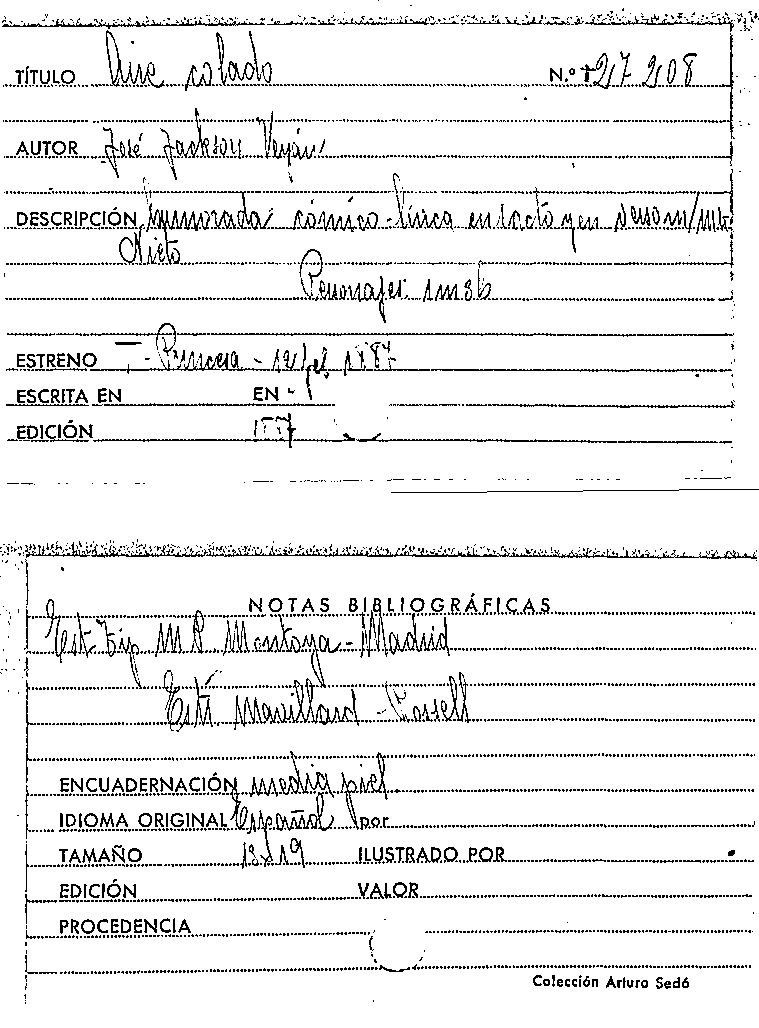 TÍTULO Aire colado N.º 27 208
AUTOR José Jackson Veyán
DESCRIPCIÓN cómico-lírica en 1 acto y en verso m/
Nieto
Personajes:
ESTRENO T.- Princesa - 12 1887
ESCRITA EN EN -
EDICIÓN 1887
NOTAS BIBLIOGRÁFICAS
Est. Tip M P Montoya - Madrid
Mavillard -
ENCUADERNACIÓN media piel
IDIOMA ORIGINAL Español por
TAMAÑO 13x19 ILUSTRADO POR
EDICIÓN VALOR
PROCEDENCIA
Colección Arturo Sedó